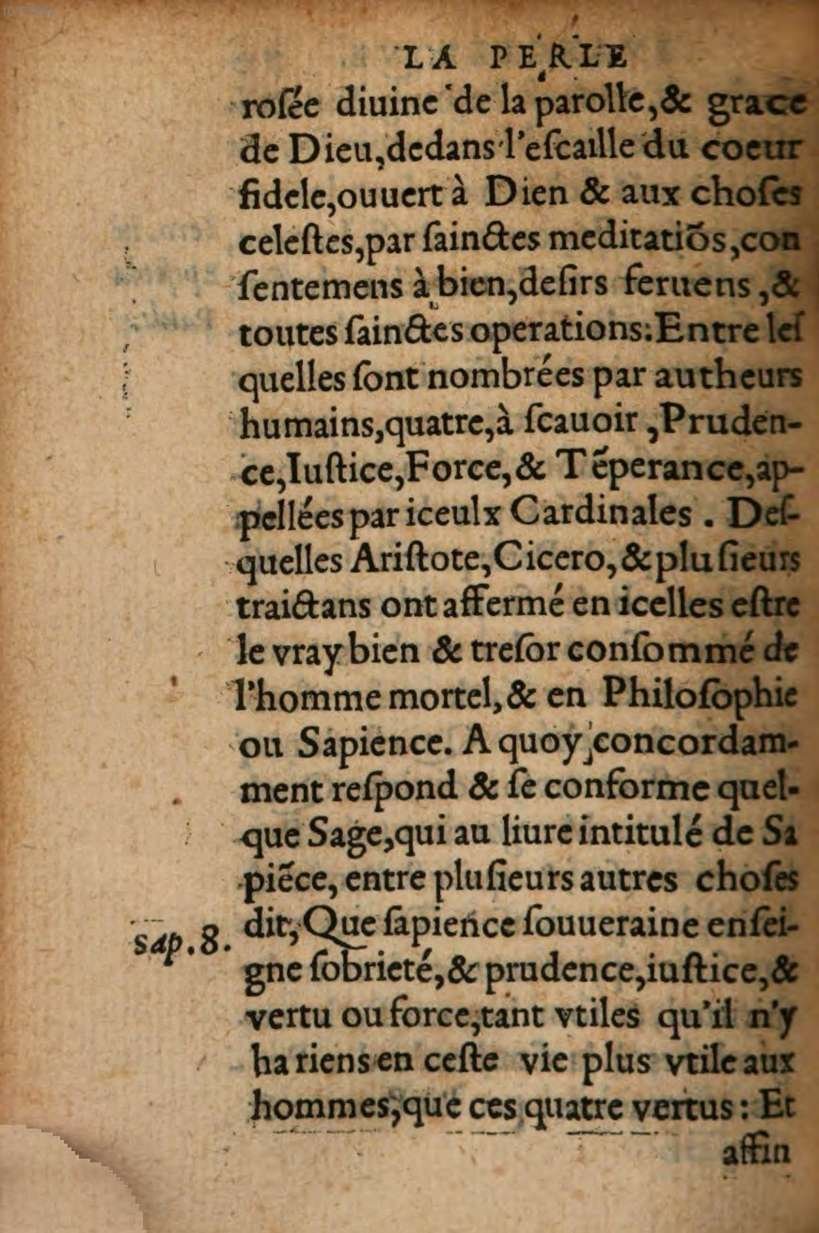 LA PERLE
roſée diuine de la parolle,& grace
de Dieu,dedans l'eſcaille du coeur
fidele,ouuert à Dien & aux choſes
celeſtes,par ſainctes meditatiõs,con
ſentemens à bien,deſirs feruens ,&
toutes ſainctes operations:Entre leſ
quelles ſont nombrées par autheurs
humains,quatre,à ſcauoir ,Pruden-
ce,Iuſtice,Force,& Tẽperance,ap-
pellées par iceulx Cardinales . Deſ-
quelles Ariſtote,Cicero,& pluſieurs
traictans ont affermé en icelles eſtre
le vray bien & treſor conſommé de
l'homme mortel,& en Philoſophie
ou Sapience. A quoy concordam-
ment reſpond & ſe conforme quel-
que Sage,qui au liure intitulé de Sa
piẽce, entre pluſieurs autres choſes
dit,Que ſapience ſouueraine enſei-
sap.8.
gne ſobrieté,& prudence,iuſtice,&
vertu ou force,tant vtiles qu'il n'y
ha riens en ceſte vie plus vtile aux
hommes,que ces quatre vertus: Et
affin